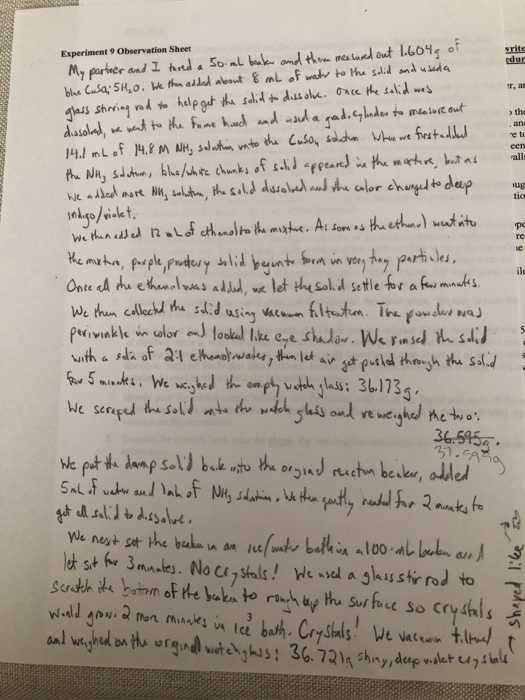 Experiment 9 Observation Sheet
My partner and I tared a 50-mL beaker and then measured out 1.604g of
blue CuSO4·5H2O. We then added about 8 mL of water to the solid and used a
glass stirring rod to help get the solid to dissolve. Once the solid was
dissolved, we went to the fume hood and used a grad. cylinder to measure out
14.1 mL of 14.8 M NH3 solution into the CuSO4 solution. When we first added
the NH3 solution, blue/white chunks of solid appeared in the mixture, but as
we added more NH3 solution, the solid dissolved and the color changed to deep
indigo/violet.
We then added 12 mL of ethanol to the mixture. As soon as the ethanol went into
the mixture, purple, powdery solid began to form in very tiny particles.
Once all the ethanol was added, we let the solid settle for a few minutes.
We then collected the solid using vacuum filtration. The powder was
periwinkle in color and looked like eye shadow. We rinsed the solid
with a soln of 2:1 ethanol:water, then let air get pushed through the solid
for 5 minutes. We weighed the empty watch glass: 36.173g.
We scraped the solid onto the watch glass and reweighed the two:
36.595g.
37.593g
We put the damp solid back into the original reaction beaker, added
5mL of water and 1mL of NH3 solution. We then gently heated for 2 minutes to
get all solid to dissolve.
We next set the beaker in an ice/water bath in a 100-mL beaker and
let sit for 3 minutes. No crystals! We used a glass stir rod to
scratch the bottom of the beaker to rough up the surface so crystals
would grow. 2 more minutes in ice bath. Crystals! We vacuum filtered
and weighed on the original watch glass: 36.721g shiny, deep violet crystals
shaped like